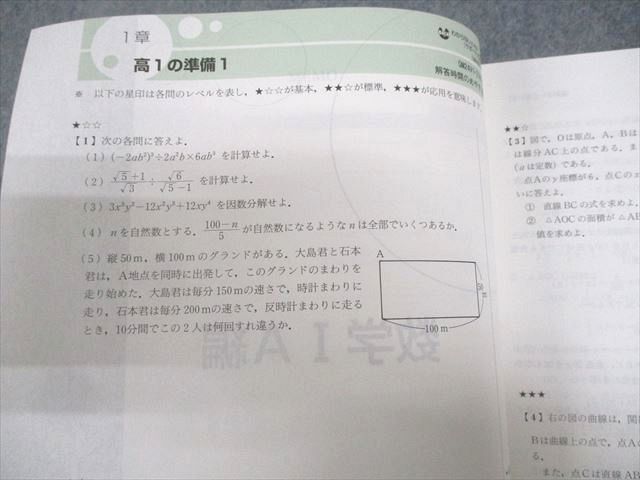 1章
高1の準備1
解答時間の
※ 以下の星印は各問のレベルを表し，★☆☆が基本，★★☆が標準，★★★が応用を意味しま
★☆☆
【1】次の各問に答えよ．
(1) (−2ab²)³÷2a²b×6ab³ を計算せよ．
(2) (√5+1)/√3 ÷ √6/(√5−1) を計算せよ．
(3) 3x³y²−12x²y³+12xy⁴ を因数分解せよ．
(4) nを自然数とする．(100−n)/5 が自然数になるようなnは全部でいくつあるか．
(5) 縦50m，横100mのグランドがある．大島君と石本
君は，A地点を同時に出発して，このグランドのまわりを
走り始めた．大島君は毎分150mの速さで，時計まわりに
走り，石本君は毎分200mの速さで，反時計まわりに走る
とき，10分間でこの2人は何回すれ違うか．
A
50 m
100 m
★★☆
【3】図で，Oは原点，A，Bは
は線分AC上の点である．ま
(aは定数) である．
点Aのy座標が6，点Cのx
いに答えよ．
① 直線BCの式を求めよ．
② △AOCの面積が△AB
値を求めよ．
★★★
【4】右の図の曲線は，関
Bは曲線上の点で，点A
る．
また，点Cは直線AB